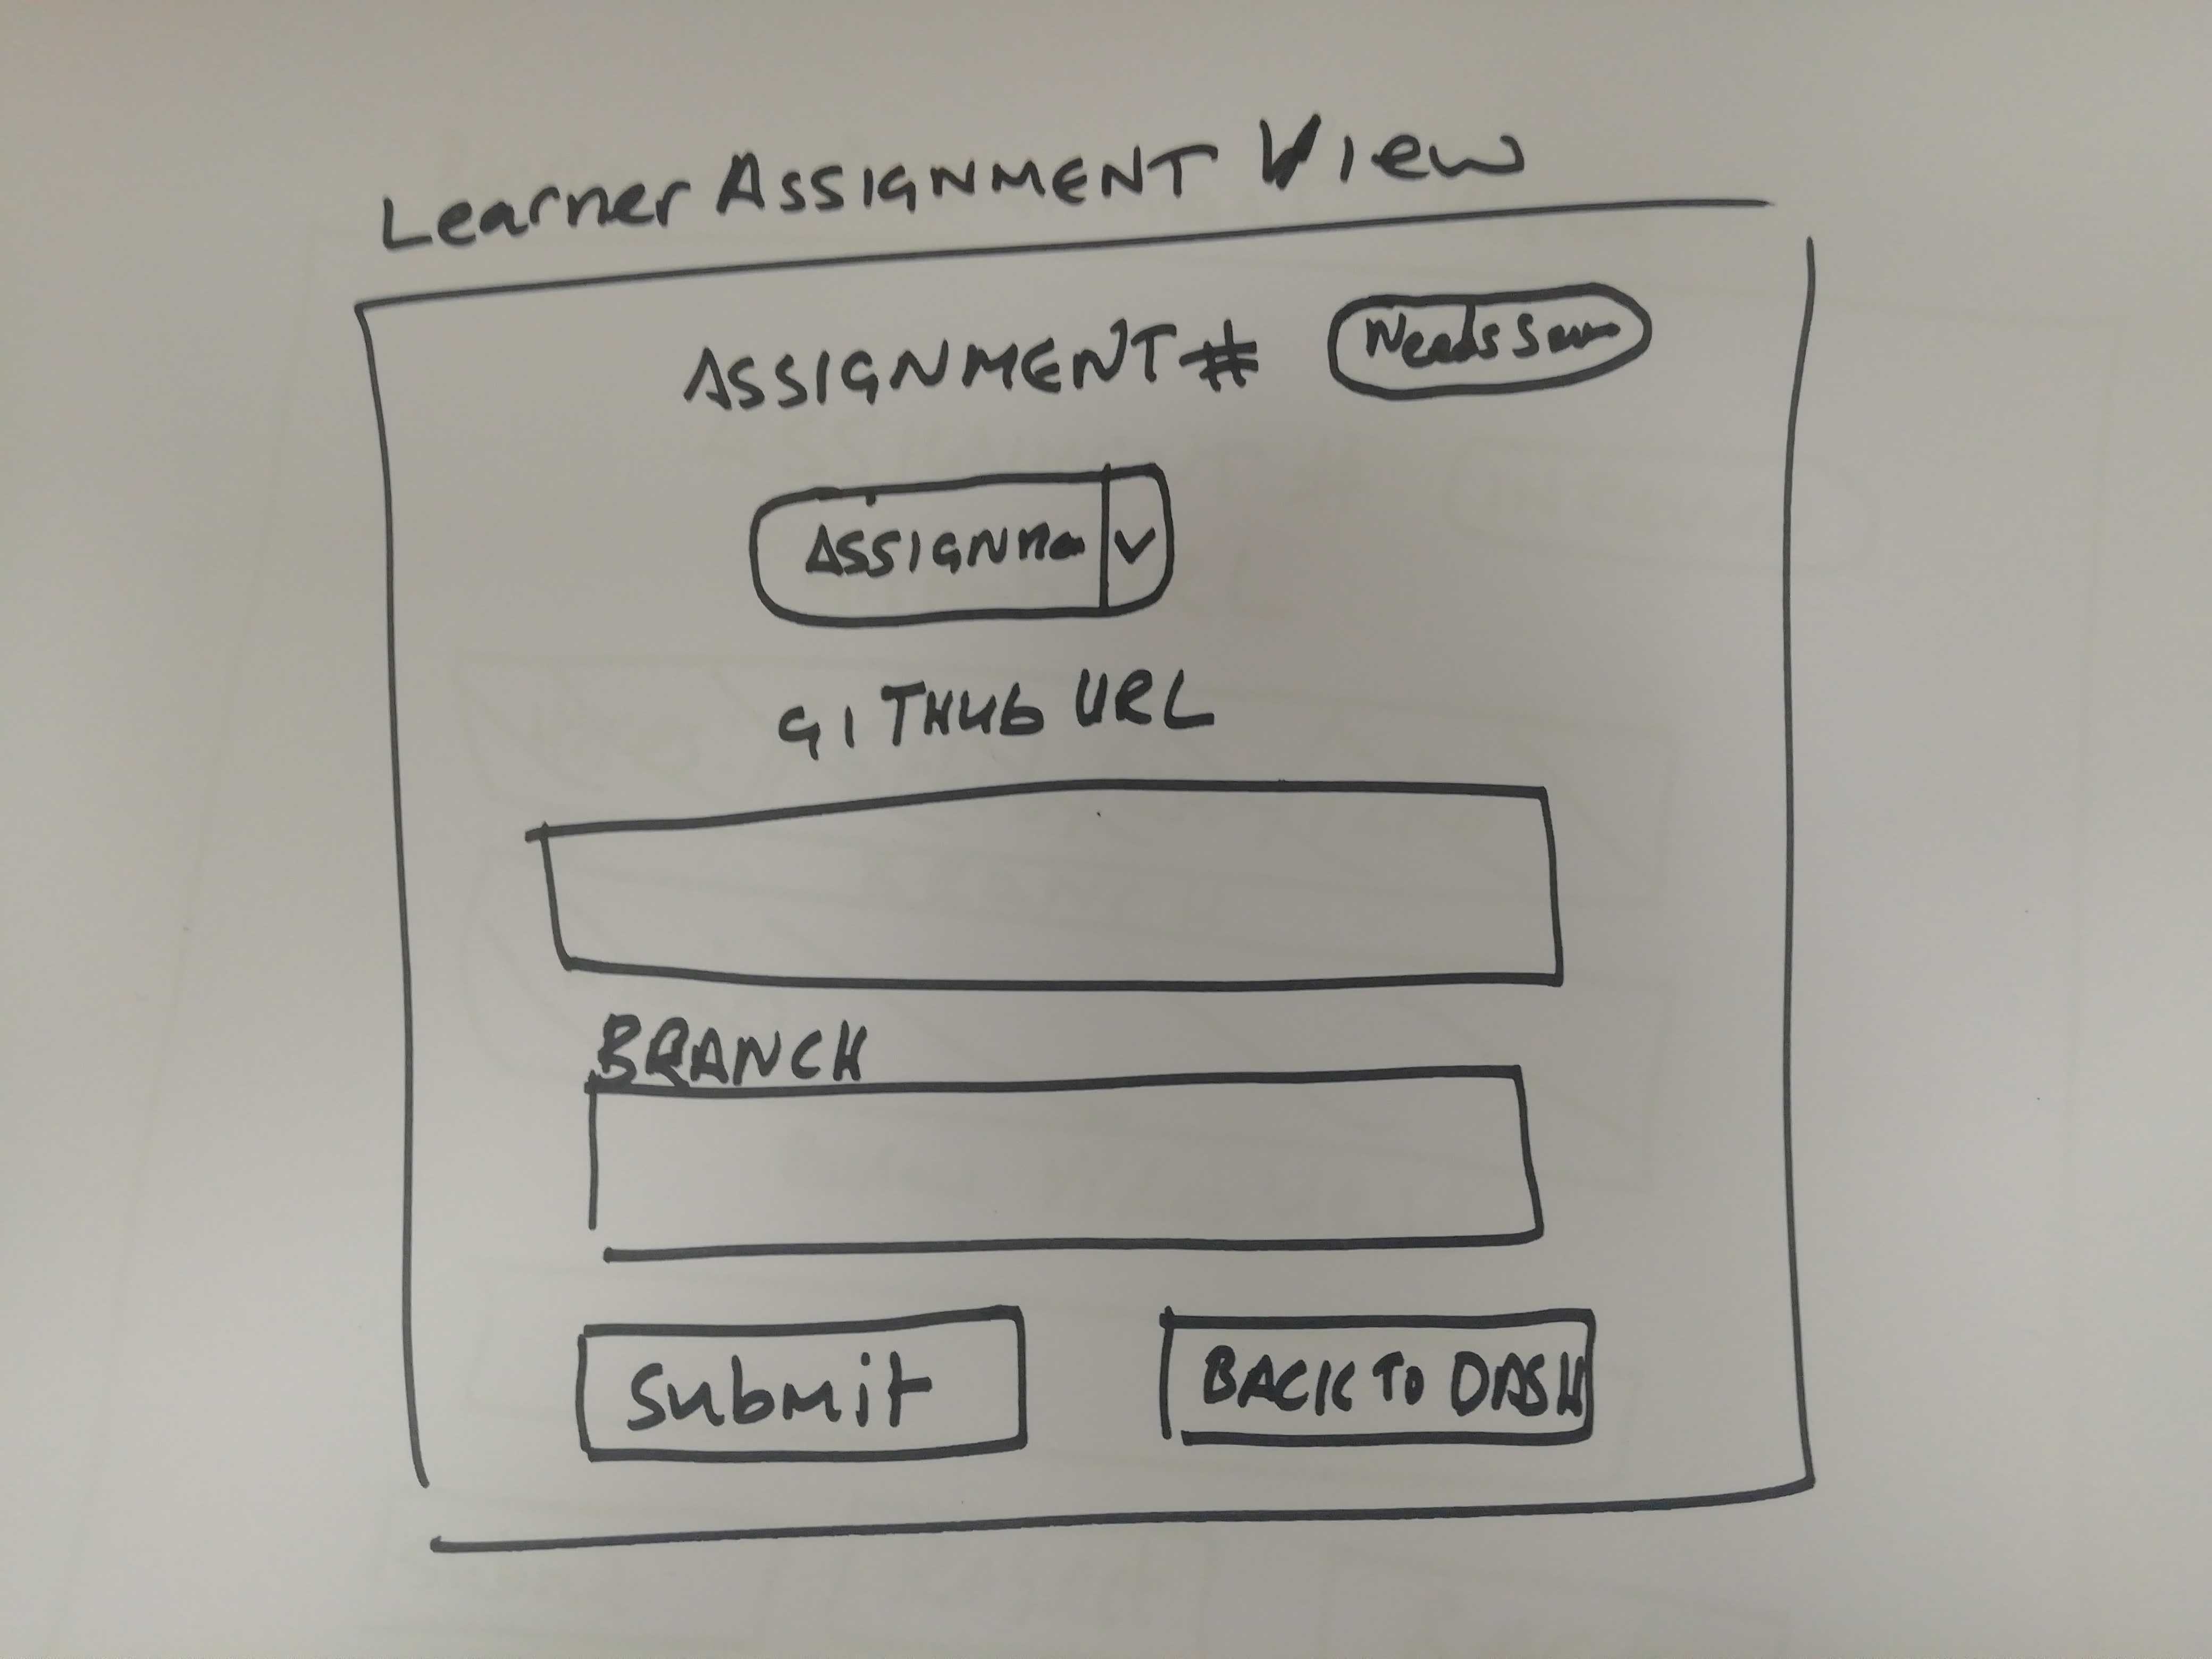 Learner ASSIGNMENT View
ASSIGNMENT # Needs
ASSIGNM
GITHub URL
BRANCH
Submit
BACK TO DASH